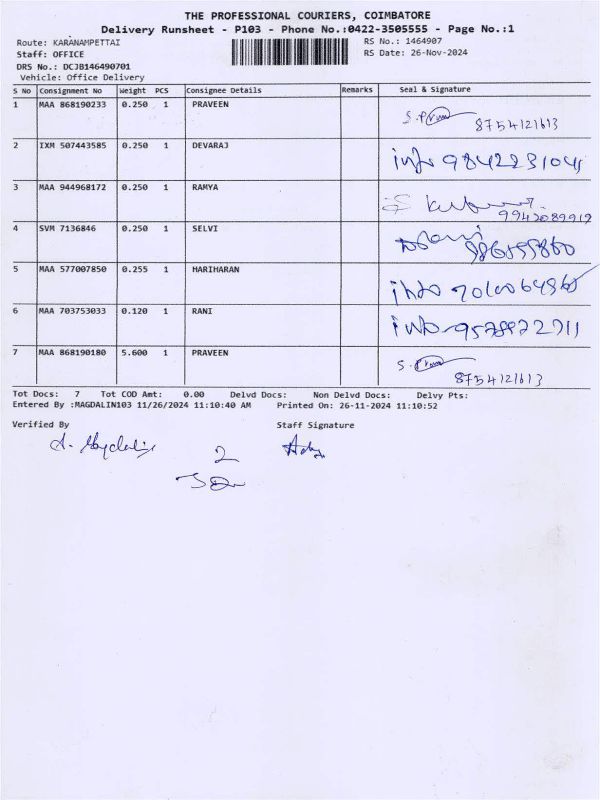 THE PROFESSIONAL COURIERS, COIMBATORE
Delivery Runsheet - P103 - Phone No.:0422-3505555 - Page No.:1
Route: KARANAMPETTAI RS No.: 1464907
Staff: OFFICE RS Date: 26-Nov-2024
DRS No.: DCJB146490701
Vehicle: Office Delivery
S No Consignment No Weight PCS Consignee Details Remarks Seal & Signature
1 MAA 868190233 0.250 1 PRAVEEN
8754121613
2 IXM 507443585 0.250 1 DEVARAJ info
3 MAA 944968172 0.250 1 RAMYA
9942089919
4 SVM 7136846 0.250 1 SELVI
5 MAA 577007850 0.255 1 HARIHARAN info
6 MAA 703753033 0.120 1 RANI info
7 MAA 868190180 5.600 1 PRAVEEN
8754121613
Tot Docs: 7 Tot COD Amt: 0.00 Delvd Docs: Non Delvd Docs: Delvy Pts:
Entered By :MAGDALIN103 11/26/2024 11:10:40 AM Printed On: 26-11-2024 11:10:52
Verified By Staff Signature
2